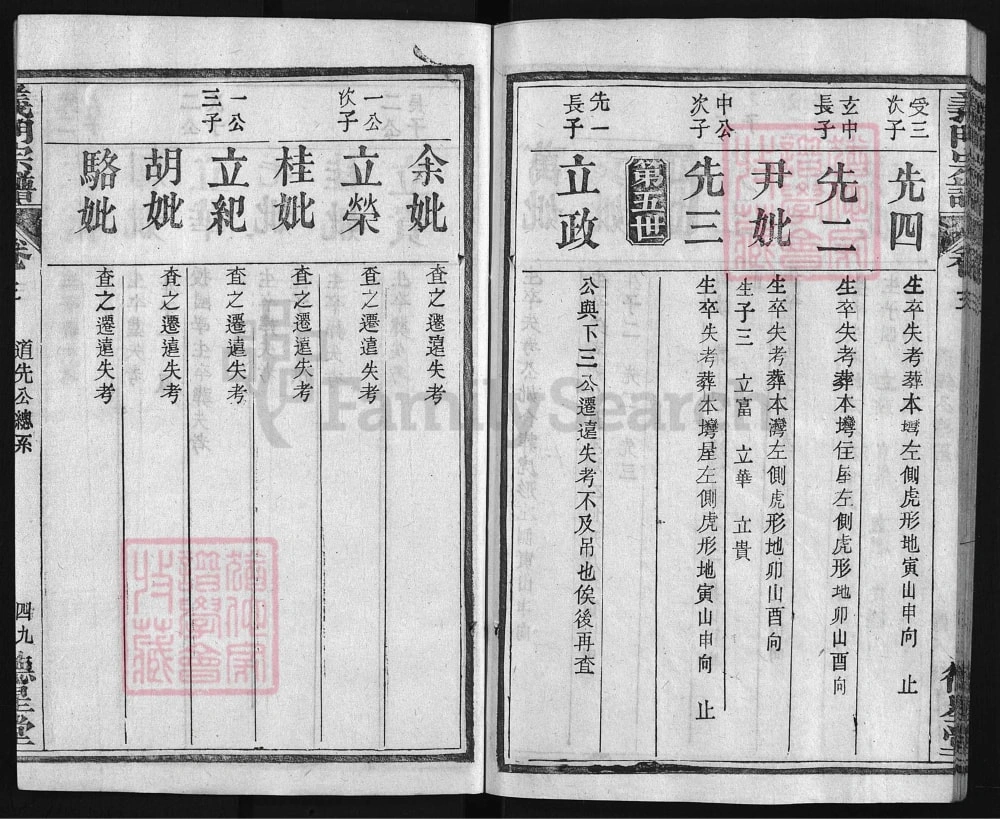 受三
次子
先四
生卒失考葬本塆左側虎形地寅山申向 止
玄中
長子
先二
生卒失考葬本塆住屋左側虎形地卯山酉向
尹妣
生卒失考葬本灣左側虎形地卯山酉向
生子三 立富 立華 立貴
中公
次子
先三
生卒失考葬本塆屋左側虎形地寅山申向 止
第五世
先一
長子
立政
公與下三公遷遠失考不及吊也俟後再查
余妣
查之遷遠失考
一公
次子
立榮
查之遷遠失考
桂妣
查之遷遠失考
一公
三子
立紀
查之遷遠失考
胡妣
查之遷遠失考
駱妣
查之遷遠失考
義門宗譜
道先公總系
四九
德星堂
FamilySearch